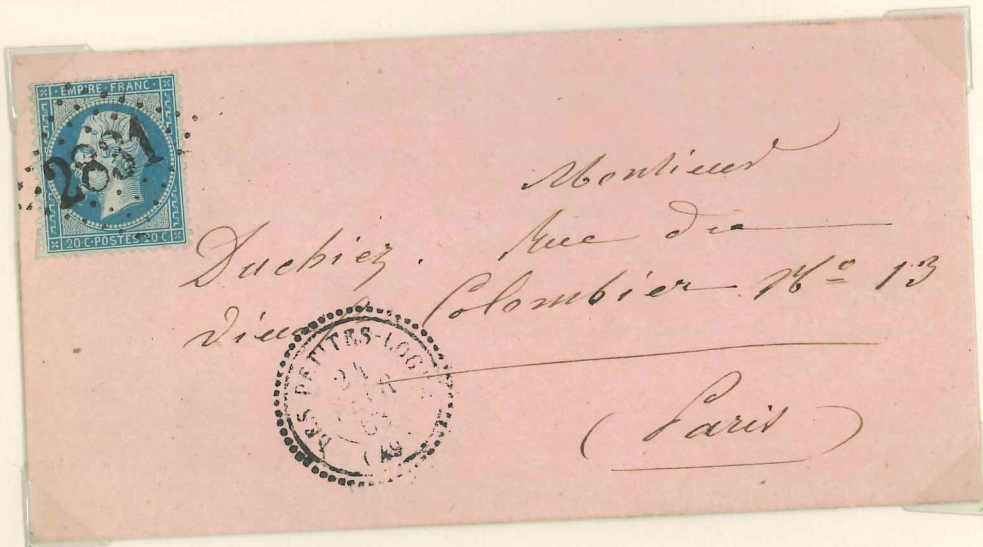 EMPIRE·FRANC·
20 C·POSTES·20 C
Monsieur
Duchiez. Rue du
Vieux Colombier Nº 13
(Paris)
LES PETITES-LOGES
24
(49)